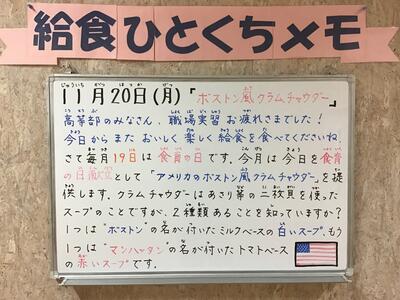 給食ひとくちメモ
11月20日(月)「ボストン風クラムチャウダー」
高等部のみなさん、職場実習お疲れさまでした!
今日からまたおいしく楽しく給食を食べてくださいね。
さて毎月19日は食育の日です。今月は今日を食育
の日献立として「アメリカのボストン風クラムチャウダー」を提
供します。クラムチャウダーはあさり等の二枚貝を使った
スープのことですが、2種類あることを知っていますか?
1つは"ボストン"の名が付いたミルクベースの白いスープ、もう
1つは"マンハッタン"の名が付いたトマトベース
の赤いスープです。